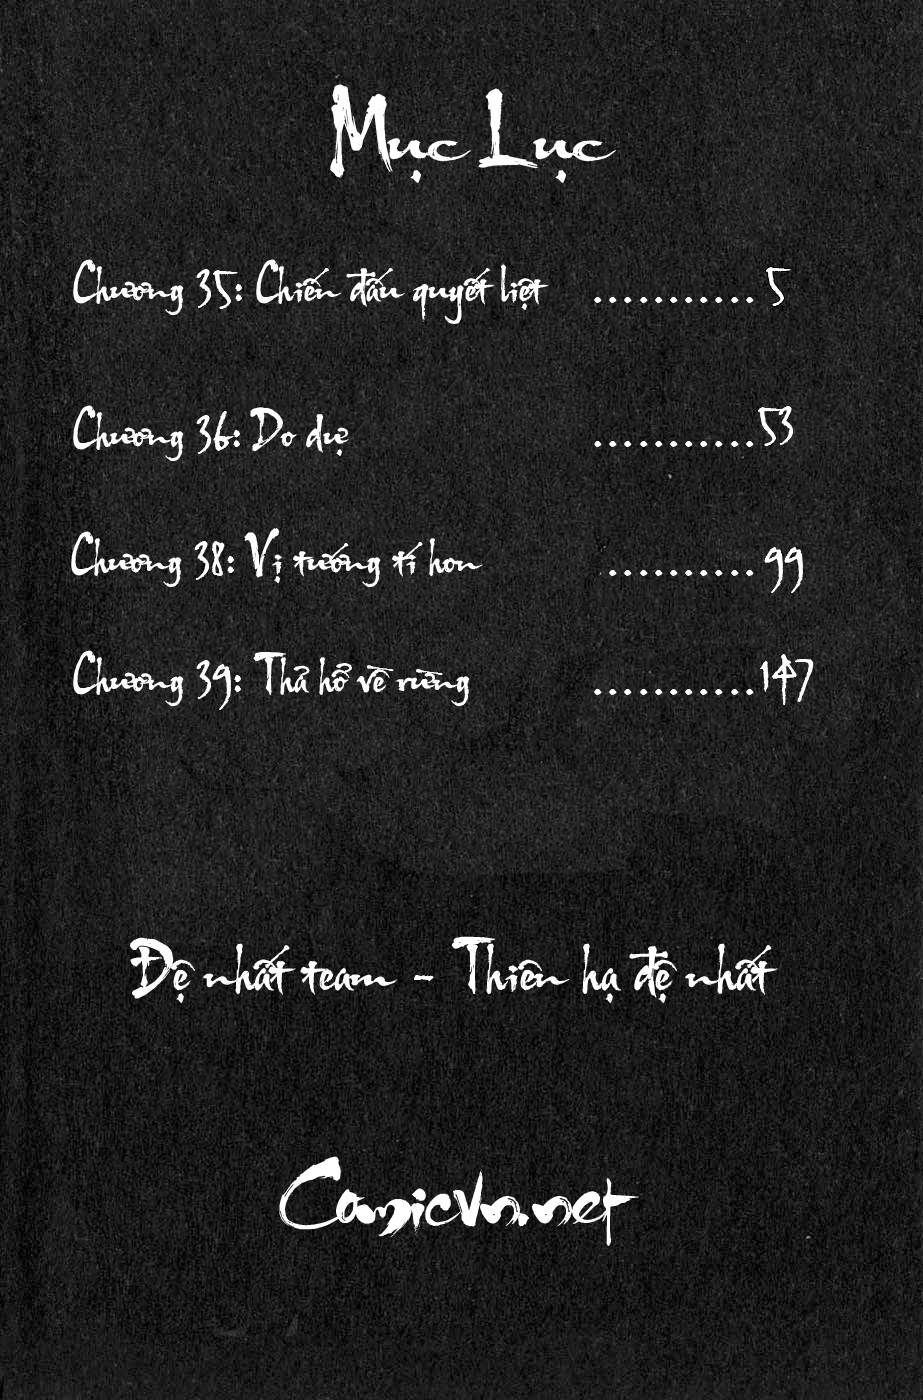 Mục Lục
Chương 35: Chiến đấu quyết liệt ........... 5
Chương 36: Do dự ...........53
Chương 38: Vị tướng tí hon .......... 99
Chương 39: Thả hổ về rừng ...........147
Đệ nhất team - Thiên hạ đệ nhất
Comicvn.net